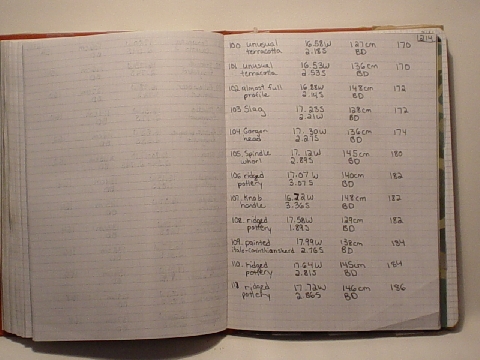 214
100. unusual 16.58W 127cm 170
terracotta 2.18S BD
101. unusual 16.53W 136cm 170
terracotta 2.53S BD
102. almost full 16.88W 148cm 172
profile 2.14S BD
103. Slag 17.23S 128cm 172
2.21W BD
104. Gorgon 17.30W 136cm 174
head 2.27S BD
105. Spindle 17.12W 145cm 180
whorl 2.89S BD
106. ridged 17.07W 140cm 182
pottery 3.07S BD
107. Knob 16.72W 148cm 182
handle 3.36S BD
108. ridged 17.58W 129cm 182
pottery 1.89S BD
109. painted 17.99W 138cm 184
italo-corinthian sherd 2.76S BD
110. ridged 17.64W 145cm 184
pottery 2.81S BD
111. ridged 17.72W 146cm 186
pottery 2.86S BD